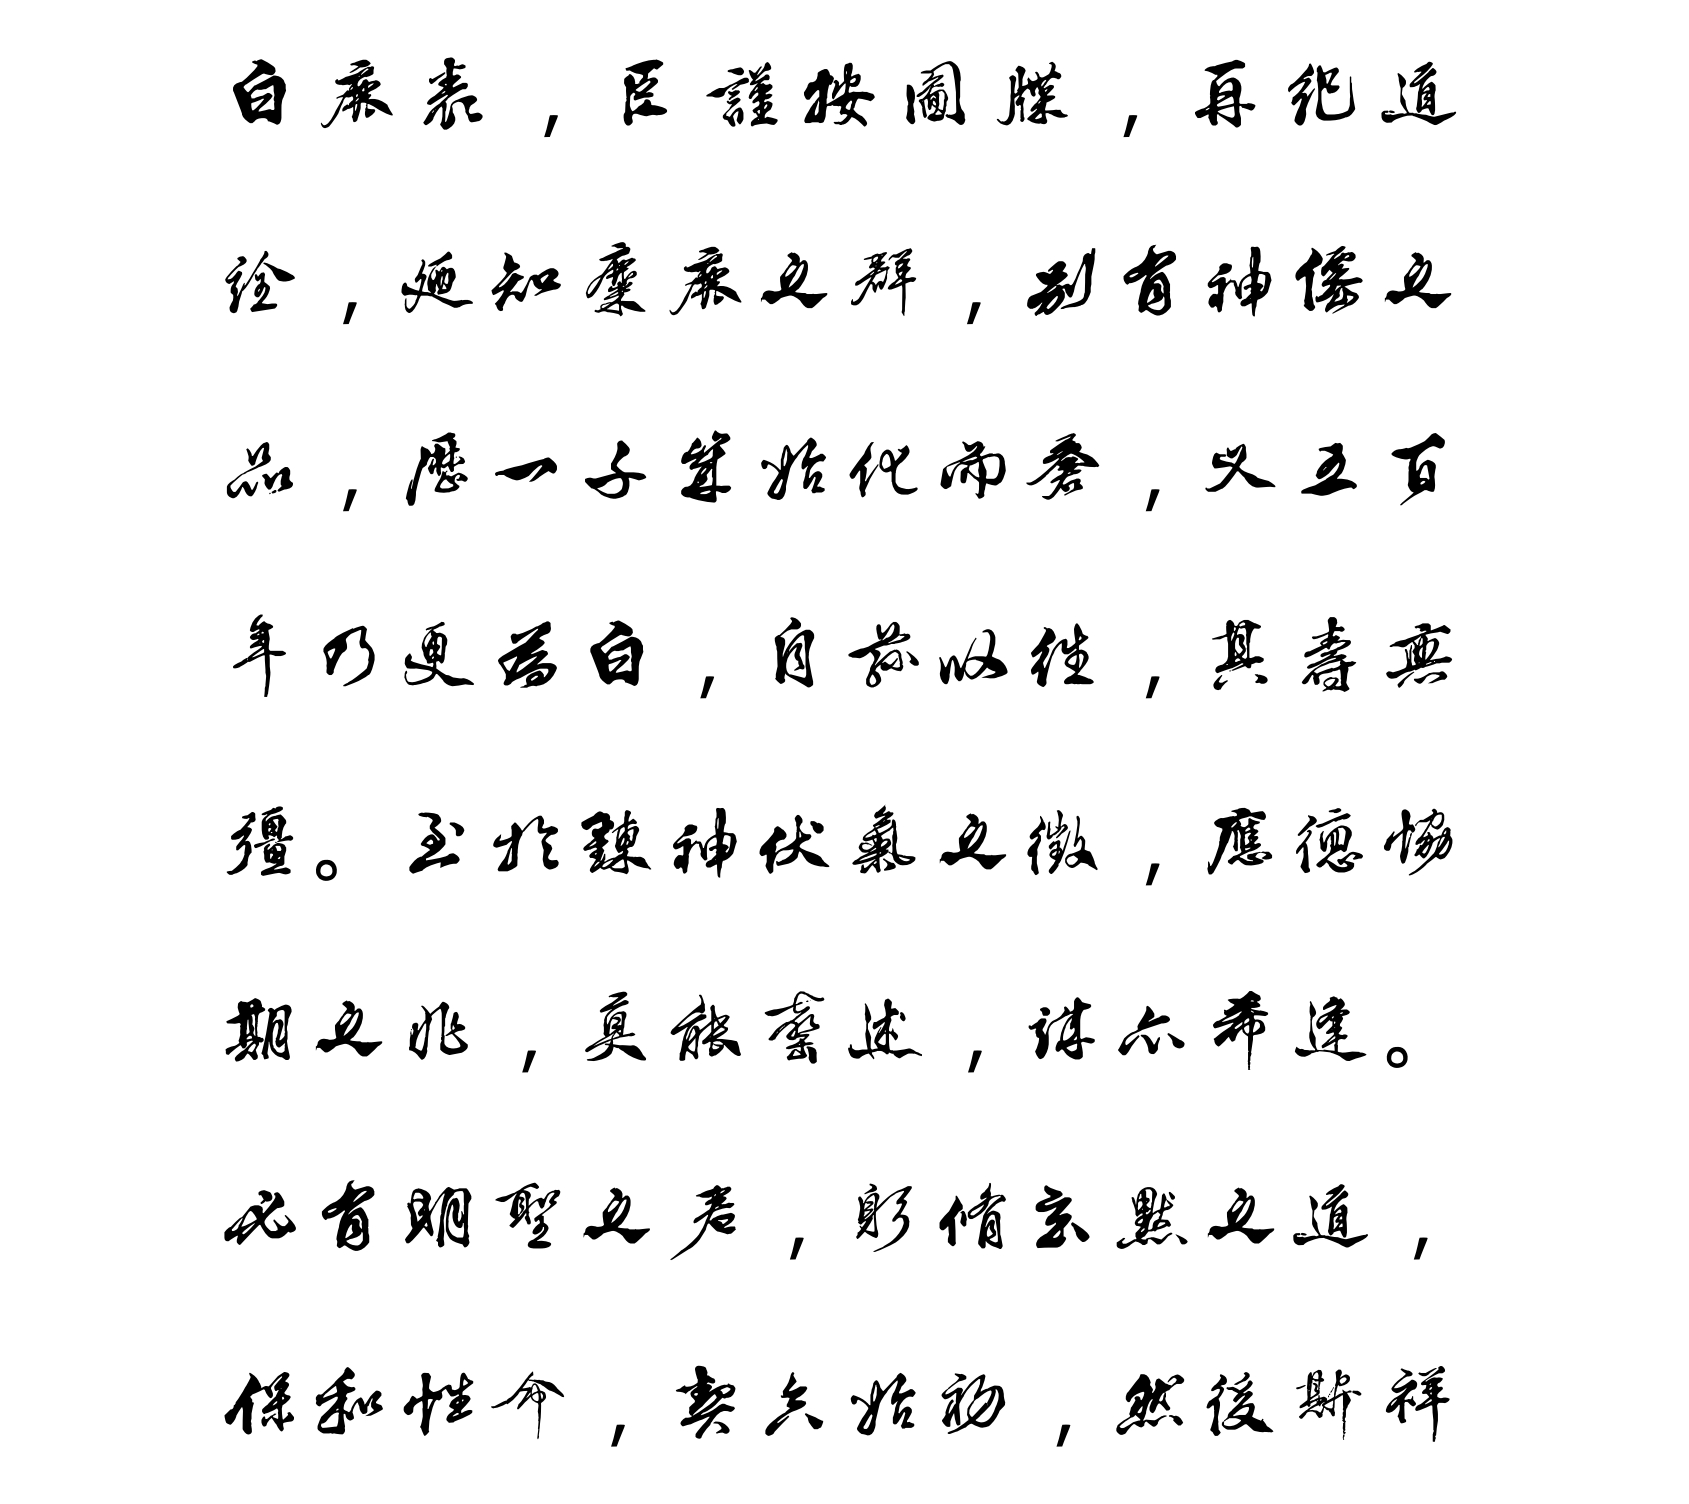 白鹿表，臣謹按圖牒，再紀道
詮，廼知麋鹿之群，別有神僊之
品，歷一千歲始化而蒼，又五百
年乃更為白，自茲以往，其壽無
疆。至於鍊神伏氣之徵，應德協
期之兆，莫能罄述，誠亦希逢。
必有明聖之君，躬脩玄默之道，
保和性命，契合始初，然後斯祥